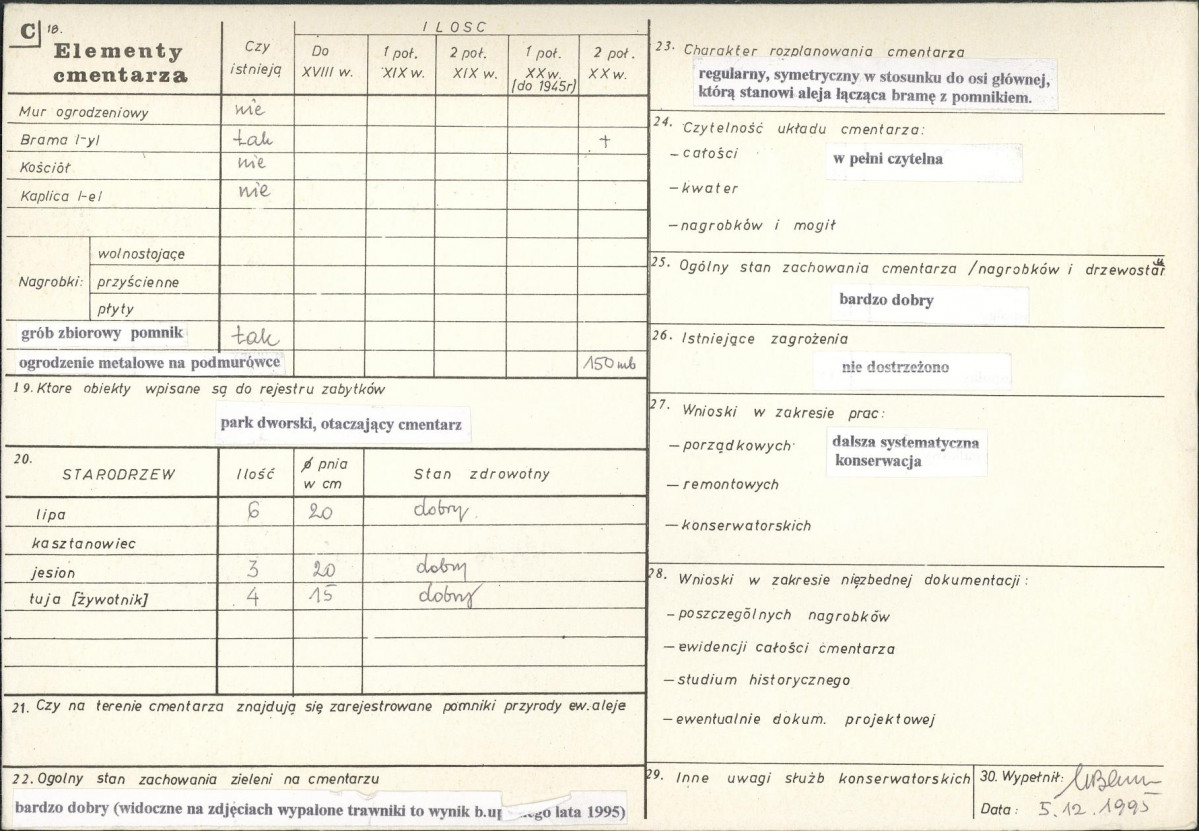 C 18.
Elementy cmentarza
Czy istnieją
ILOSC
Do XVIII w.
1 poł. XIX w.
2 poł. XIX w.
1 poł. XX w. [do 1945r]
2 poł. XX w.
Mur ogrodzeniowy nie
Brama /-y/ tak +
Kościół nie
Kaplica /-e/ nie
Nagrobki:
wolnostojące
przyścienne
płyty
grób zbiorowy pomnik tak
ogrodzenie metalowe na podmurówce 150 mb
19. Ktore obiekty wpisane są do rejestru zabytków
park dworski, otaczający cmentarz
20.
STARODRZEW Ilość ø pnia w cm Stan zdrowotny
lipa 6 20 dobry
kasztanowiec
jesion 3 20 dobry
tuja [żywotnik] 4 15 dobry
21. Czy na terenie cmentarza znajdują się zarejestrowane pomniki przyrody ew. aleje
22. Ogolny stan zachowania zieleni na cmentarzu
bardzo dobry (widoczne na zdjęciach wypalone trawniki to wynik lata 1995)
23. Charakter rozplanowania cmentarza
regularny, symetryczny w stosunku do osi głównej,
którą stanowi aleja łącząca bramę z pomnikiem.
24. Czytelność układu cmentarza:
- całości w pełni czytelna
- kwater
- nagrobków i mogił
25. Ogólny stan zachowania cmentarza /nagrobków i drzewostanu
bardzo dobry
26. Istniejące zagrożenia
nie dostrzeżono
27. Wnioski w zakresie prac:
- porządkowych dalsza systematyczna
konserwacja
- remontowych
- konserwatorskich
28. Wnioski w zakresie nięzbednej dokumentacji:
- poszczególnych nagrobków
- ewidencji całości cmentarza
- studium historycznego
- ewentualnie dokum. projektowej
29. Inne uwagi służb konserwatorskich
30. Wypełnił:
Data: 5.12.1995